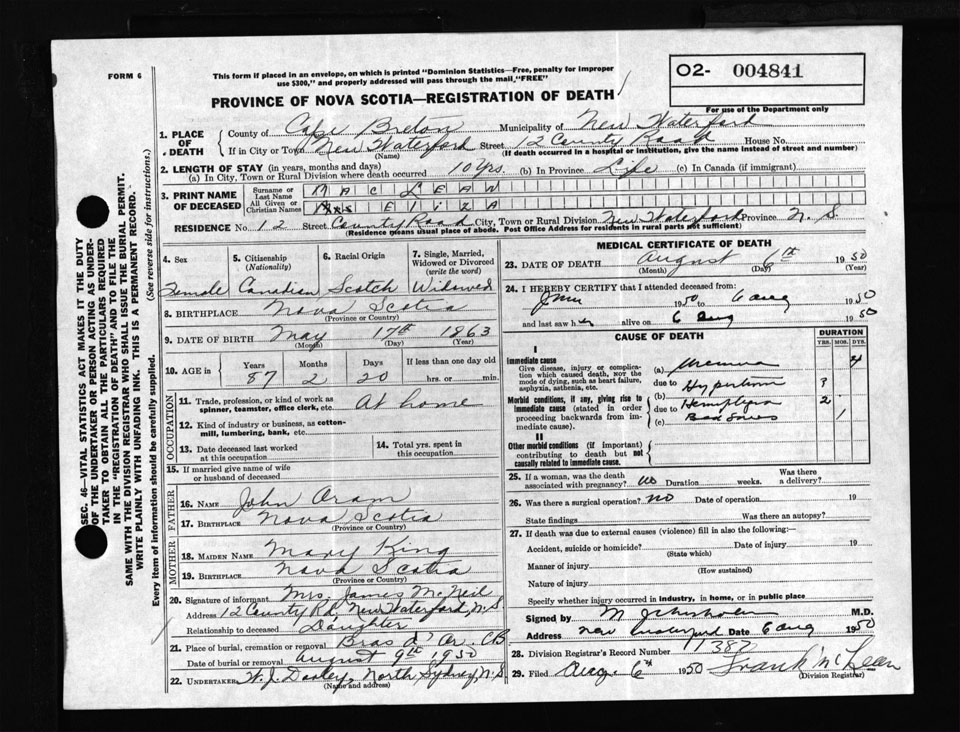 FORM 6
This form if placed in an envelope, on which is printed "Dominion Statistics—Free, penalty for improper
use $300," and properly addressed will pass through the mail, "FREE"
O2- 004841
For use of the Department only
PROVINCE OF NOVA SCOTIA—REGISTRATION OF DEATH
1. PLACE OF DEATH
County of Cape Breton Municipality of New Waterford
If in City or Town New Waterford Street 12 County Road House No.
(Name) (If death occurred in a hospital or institution, give the name instead of street and number)
2. LENGTH OF STAY (in years, months and days)
(a) In City, Town or Rural Division where death occurred 10 yrs. (b) In Province Life (c) In Canada (if immigrant)
3. PRINT NAME OF DECEASED
Surname or Last Name MAC LEAN
All Given or Christian Names Mrs Eliza
RESIDENCE No. 12 Street County Road City, Town or Rural Division New Waterford Province N.S.
(Residence means usual place of abode. Post Office Address for residents in rural parts not sufficient)
4. Sex Female
5. Citizenship (Nationality) Canadian
6. Racial Origin Scotch
7. Single, Married, Widowed or Divorced (write the word) Widowed
8. BIRTHPLACE Nova Scotia
(Province or Country)
9. DATE OF BIRTH May 17th 1863
(Month) (Day) (Year)
10. AGE in Years Months Days If less than one day old
87 2 20 hrs. or min.
OCCUPATION
11. Trade, profession, or kind of work as
spinner, teamster, office clerk, etc. At home
12. Kind of industry or business, as cotton-
mill, lumbering, bank, etc.
13. Date deceased last worked
at this occupation
14. Total yrs. spent in
this occupation
15. If married give name of wife
or husband of deceased
FATHER
16. NAME John Oram
17. BIRTHPLACE Nova Scotia
(Province or Country)
MOTHER
18. MAIDEN NAME Mary King
19. BIRTHPLACE Nova Scotia
(Province or Country)
20. Signature of informant Mrs. James McNeil
Address 12 County Rd. New Waterford, N.S
Relationship to deceased Daughter
21. Place of burial, cremation or removal Bras d'Or. C.B
Date of burial or removal August 9th 1950
22. UNDERTAKER W. J. Dooley, North Sydney, N.S
(Name and address)
MEDICAL CERTIFICATE OF DEATH
23. DATE OF DEATH August 6th 1950
(Month) (Day) (Year)
24. I HEREBY CERTIFY that I attended deceased from:
1950 to 6 Aug 1950
and last saw her alive on 6 Aug 1950
CAUSE OF DEATH
DURATION
YRS. MOS. DYS.
I
Immediate cause
Give disease, injury or complica-
tion which caused death, not the
mode of dying, such as heart failure,
asphyxia, asthenia, etc.
(a) Uraemia 4
due to
(b) ?
Morbid conditions, if any, giving rise to
immediate cause (stated in order
proceeding backwards from im-
mediate cause).
due to Hemiplegia 2
(c) Bed Sores 1
II
Other morbid conditions (if important)
contributing to death but not
causally related to immediate cause.
25. If a woman, was the death
associated with pregnancy? no Duration weeks. Was there a delivery?
26. Was there a surgical operation? no Date of operation 19
State findings Was there an autopsy?
27. If death was due to external causes (violence) fill in also the following:—
Accident, suicide or homicide? Date of injury 19
(State which)
Manner of injury
(How sustained)
Nature of injury
Specify whether injury occurred in industry, in home, or in public place
Signed by M. M.D.
Address New Waterford Date 6 Aug 1950
28. Division Registrar's Record Number 11387
29. Filed Aug 6th 1950 Frank McLean
(Division Registrar)
SEC. 46—VITAL STATISTICS ACT MAKES IT THE DUTY
OF THE UNDERTAKER OR PERSON ACTING AS UNDER-
TAKER TO OBTAIN ALL THE PARTICULARS REQUIRED
IN THE "REGISTRATION OF DEATH" AND TO FILE THE
SAME WITH THE DIVISION REGISTRAR WHO SHALL ISSUE THE BURIAL PERMIT.
WRITE PLAINLY WITH UNFADING INK. THIS IS A PERMANENT RECORD.
Every item of information should be carefully supplied. (See reverse side for instructions.)